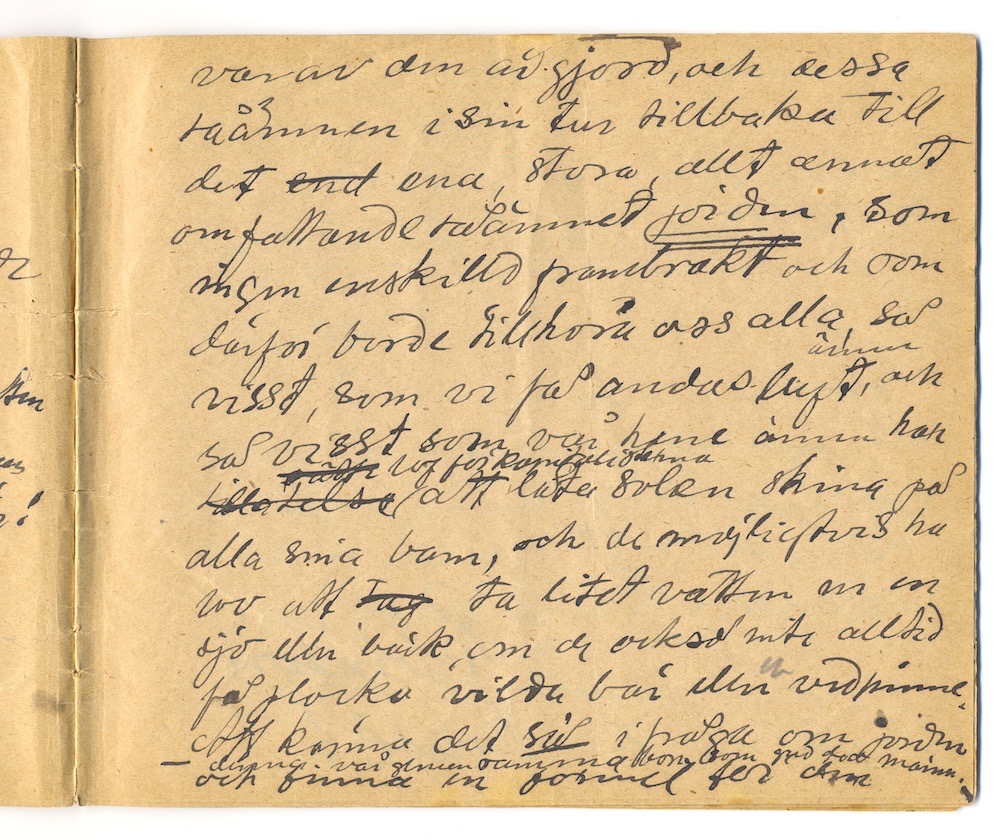 varav den är gjord, och dessa
råämnen i sin tur tillbaka till
det end ena, stora, allt annat
omfattande råämnet jorden, som
ingen enskild frambrakt och som
därför borde tillhöra oss alla, så
ännu
visst, som vi få andas luft, och
så visst som vår herre ännu har
rätt lov för
tillåtelse att låta solen skina på
alla sina barn, och de möjligtvis ha
lov att tag ta litet vatten ur en
sjö eller bäck, om de också inte alltid
få plocka vilda bär eller en vedpinne.
Att känna det så i fråga om jorden
denna vår gemensamma som gud
och finna en formel för den